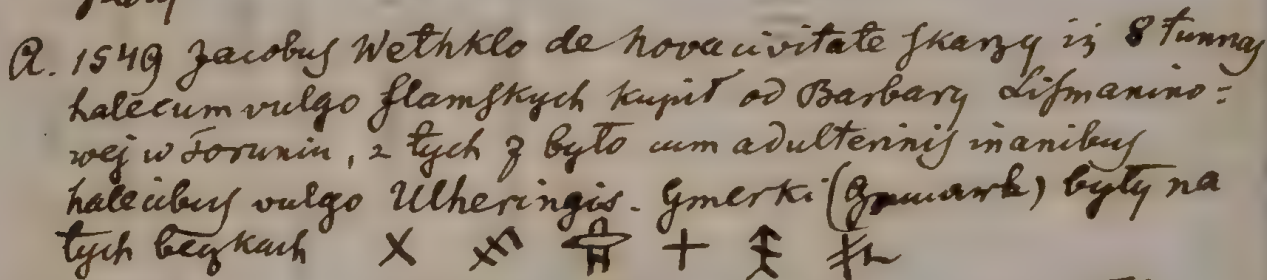 A. 1549 Jacobus Wethklo de nova civitate skarzy iż 8 tunnas
halecum vulgo flamskych kupił od Barbary Lismanino=
wej w Toruniu, z tych 3 było cum adulterinis inanibus
halecibus vulgo Ulheringis. Gmerki () były na
tych beczkach